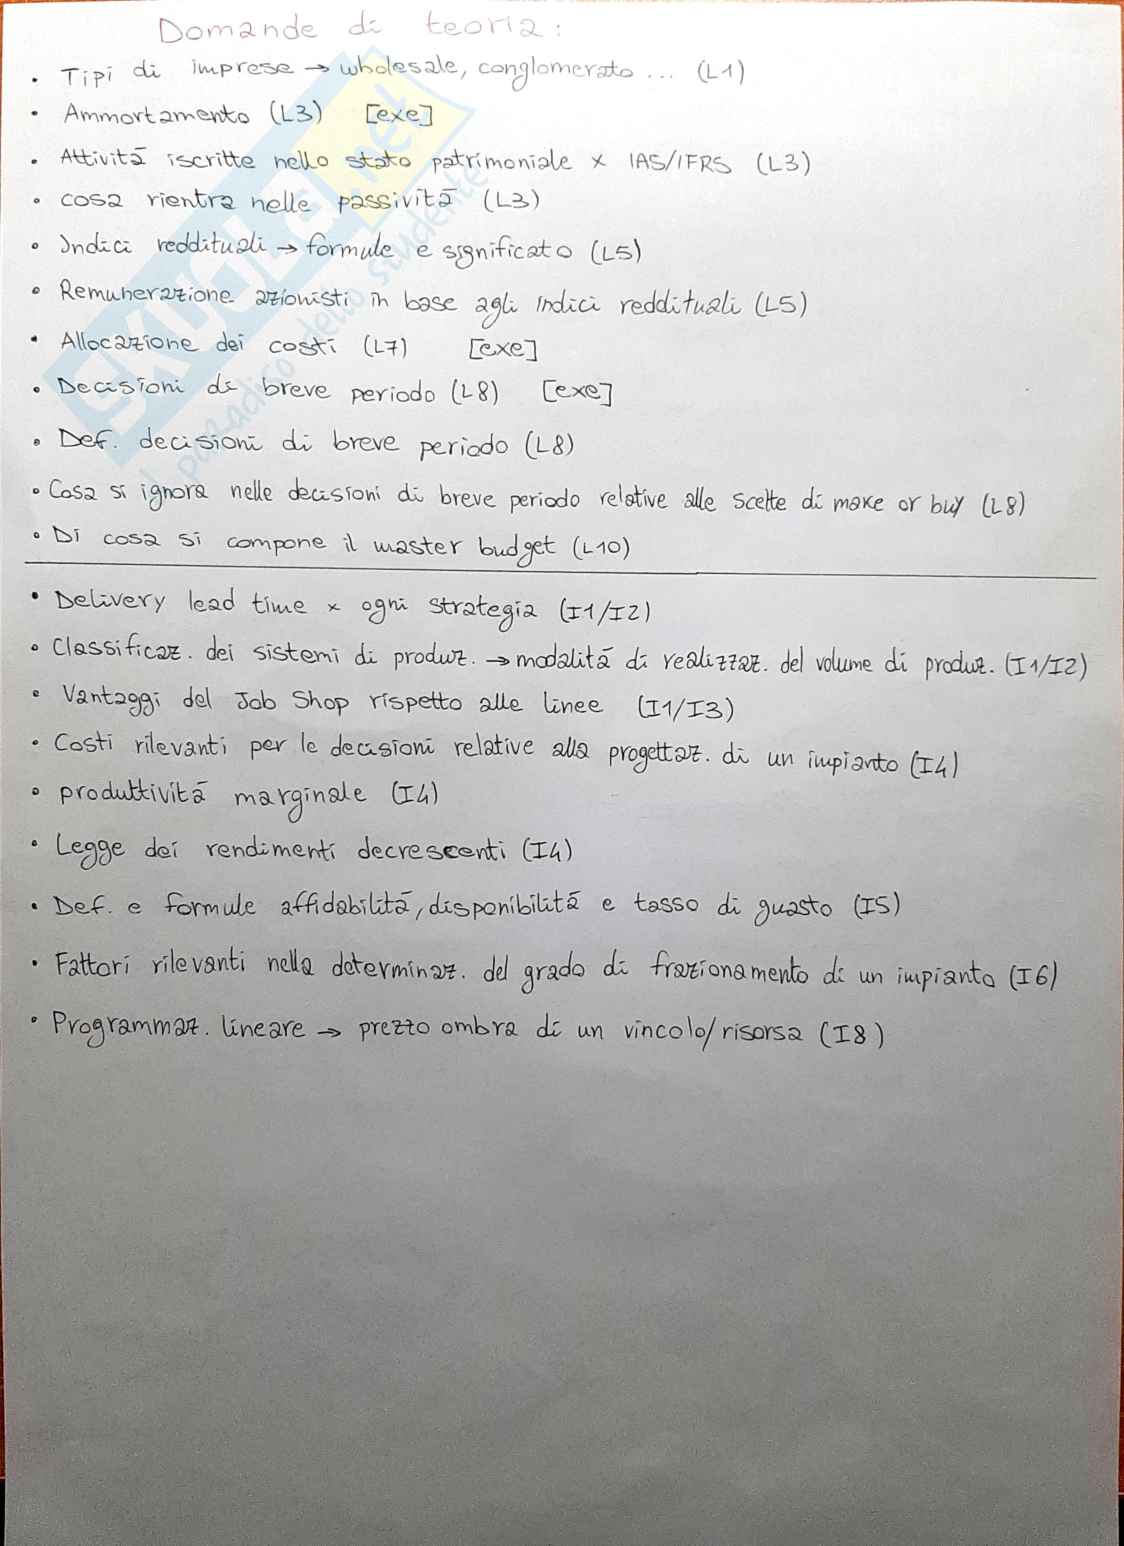 Domande di teoria:
• Tipi di imprese → wholesale, conglomerato ... (L1)
• Ammortamento (L3) [exe]
• Attività iscritte nello stato patrimoniale x IAS/IFRS (L3)
• cosa rientra nelle passività (L3)
• Indici reddituali → formule e significato (L5)
• Remunerazione azionisti in base agli indici reddituali (L5)
• Allocazione dei costi (L7) [exe]
• Decisioni di breve periodo (L8) [exe]
• Def. decisioni di breve periodo (L8)
• Cosa si ignora nelle decisioni di breve periodo relative alle scelte di make or buy (L8)
• Di cosa si compone il master budget (L10)
• Delivery lead time x ogni strategia (I1/I2)
• Classificaz. dei sistemi di produz. → modalità di realizzaz. del volume di produz. (I1/I2)
• Vantaggi del Job Shop rispetto alle linee (I1/I3)
• Costi rilevanti per le decisioni relative alla progettaz. di un impianto (I4)
• produttività marginale (I4)
• Legge dei rendimenti decrescenti (I4)
• Def. e formule affidabilità, disponibilità e tasso di guasto (I5)
• Fattori rilevanti nella determinaz. del grado di frazionamento di un impianto (I6)
• Programmaz. lineare → prezzo ombra di un vincolo/risorsa (I8)
SKUOLA.net
il paradiso dello studente